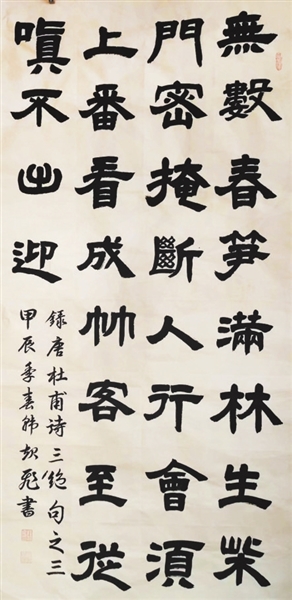 無數春笋滿林生柴
門密掩斷人行會須
上番看成竹客至從
嗔不出迎
録唐杜甫诗三绝句之三
甲辰季春 書